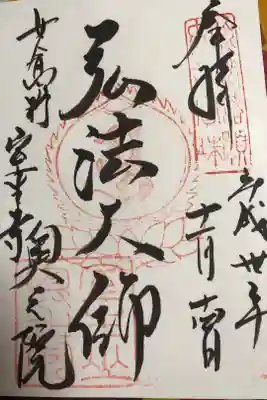 奉拝
平成卅年
十一月十四日
弘法大師
女人高野
室生寺奥之院